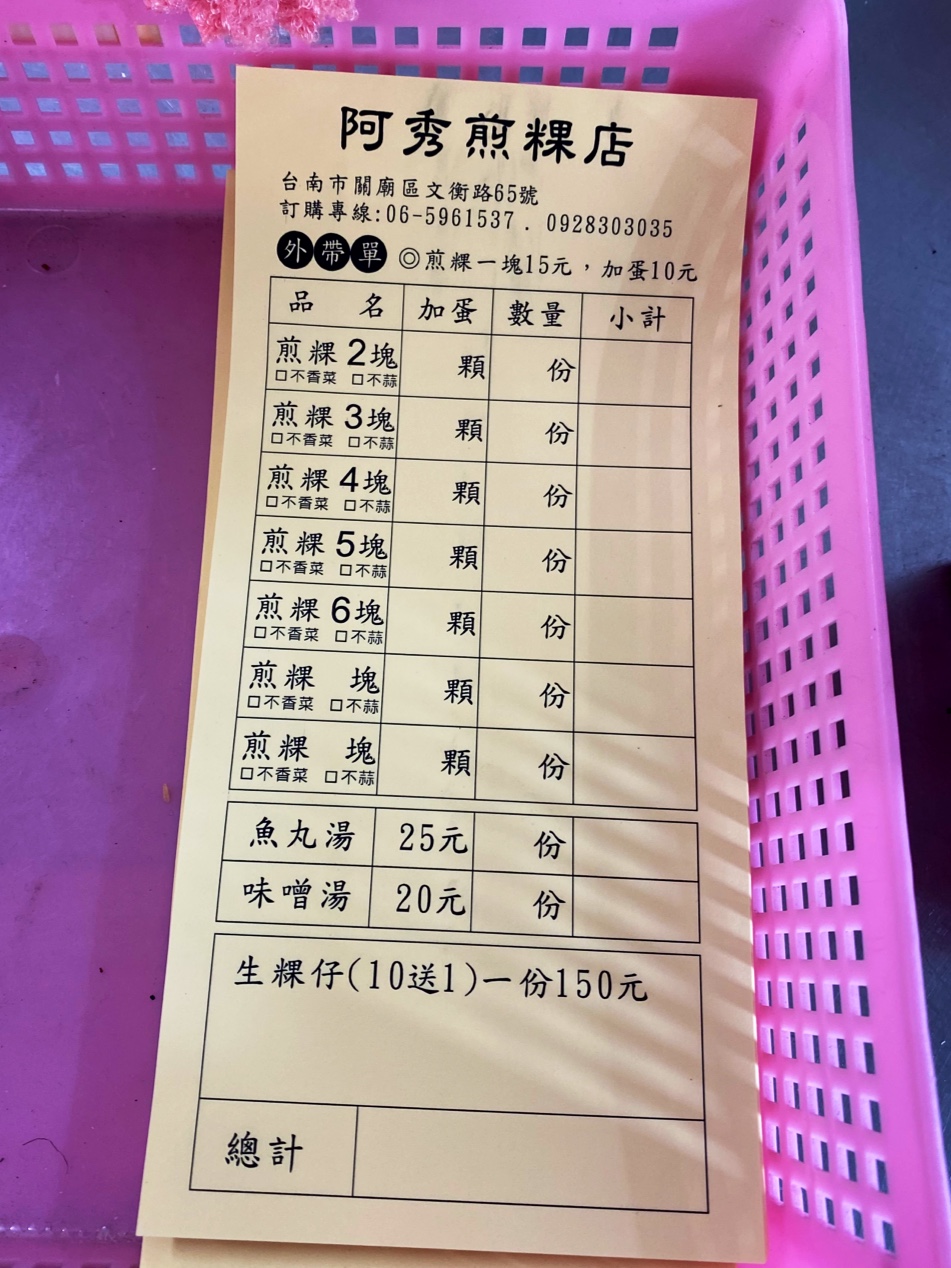 阿秀煎粿店
台南市關廟區文衡路65號
訂購專線:06-5961537 . 0928303035
外帶單 ◎煎粿一塊15元，加蛋10元
品 名 加蛋 數量 小計
煎粿 2塊 顆 份
□不香菜 □不蒜
煎粿 3塊 顆 份
□不香菜 □不蒜
煎粿 4塊 顆 份
□不香菜 □不蒜
煎粿 5塊 顆 份
□不香菜 □不蒜
煎粿 6塊 顆 份
□不香菜 □不蒜
煎粿 塊 顆 份
□不香菜 □不蒜
煎粿 塊 顆 份
□不香菜 □不蒜
魚丸湯 25元 份
味噌湯 20元 份
生粿仔(10送1)一份150元
總計